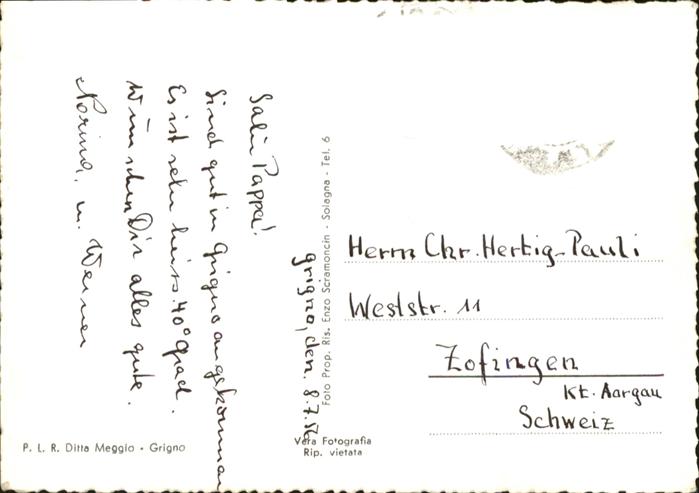 Grigno, den. 8.7.56
Salü Pappa!
Sind gut in Grigno angekommen
Es ist sehr heiss. 40° Grad.
Wünschen Dir alles gute.
Norina, u. Werner
P. L. R. Ditta Meggio - Grigno
Foto Prop. Ris. Enzo Scramoncin - Solagna - Tel. 6
Vera Fotografia
Rip. vietata
Herrn Chr. Hertig-Pauli
Weststr. 11
Zofingen
Kt. Aargau
Schweiz